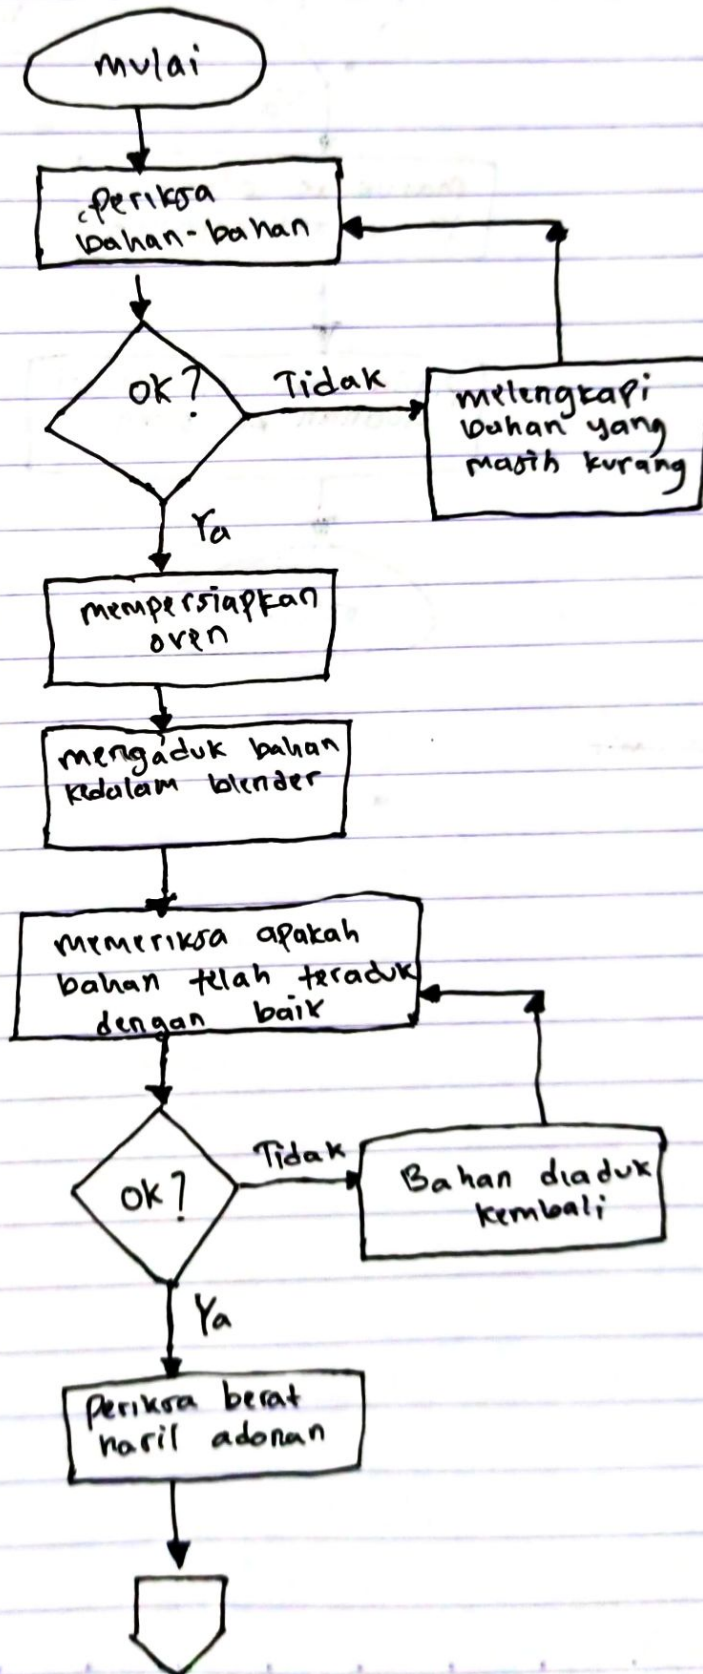 mulai
periksa
bahan-bahan
OK?
Tidak
melengkapi
bahan yang
masih kurang
Ya
mempersiapkan
oven
mengaduk bahan
kedalam blender
memeriksa apakah
bahan telah teraduk
dengan baik
OK?
Tidak
Bahan diaduk
kembali
Ya
periksa berat
hasil adonan